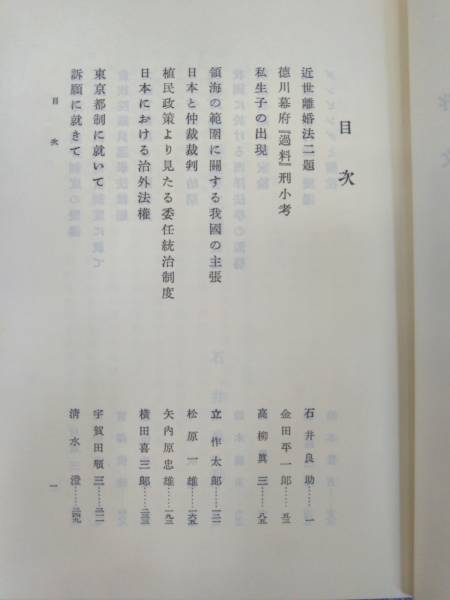 目次
近世離婚法二題 石井良助……一
德川幕府『過料』刑小考 金田平一郎……五三
私生子の出現 高柳眞三……八五
領海の範圍に關する我國の主張 立作太郎……一三一
日本と仲裁裁判 松原一雄……一六五
植民政策より見たる委任統治制度 矢內原忠雄……一九三
日本における治外法權 横田喜三郎……二三三
東京都制に就いて 宇賀田順三……三一一
訴願に就きて 淸水澄……二四九
目次 一